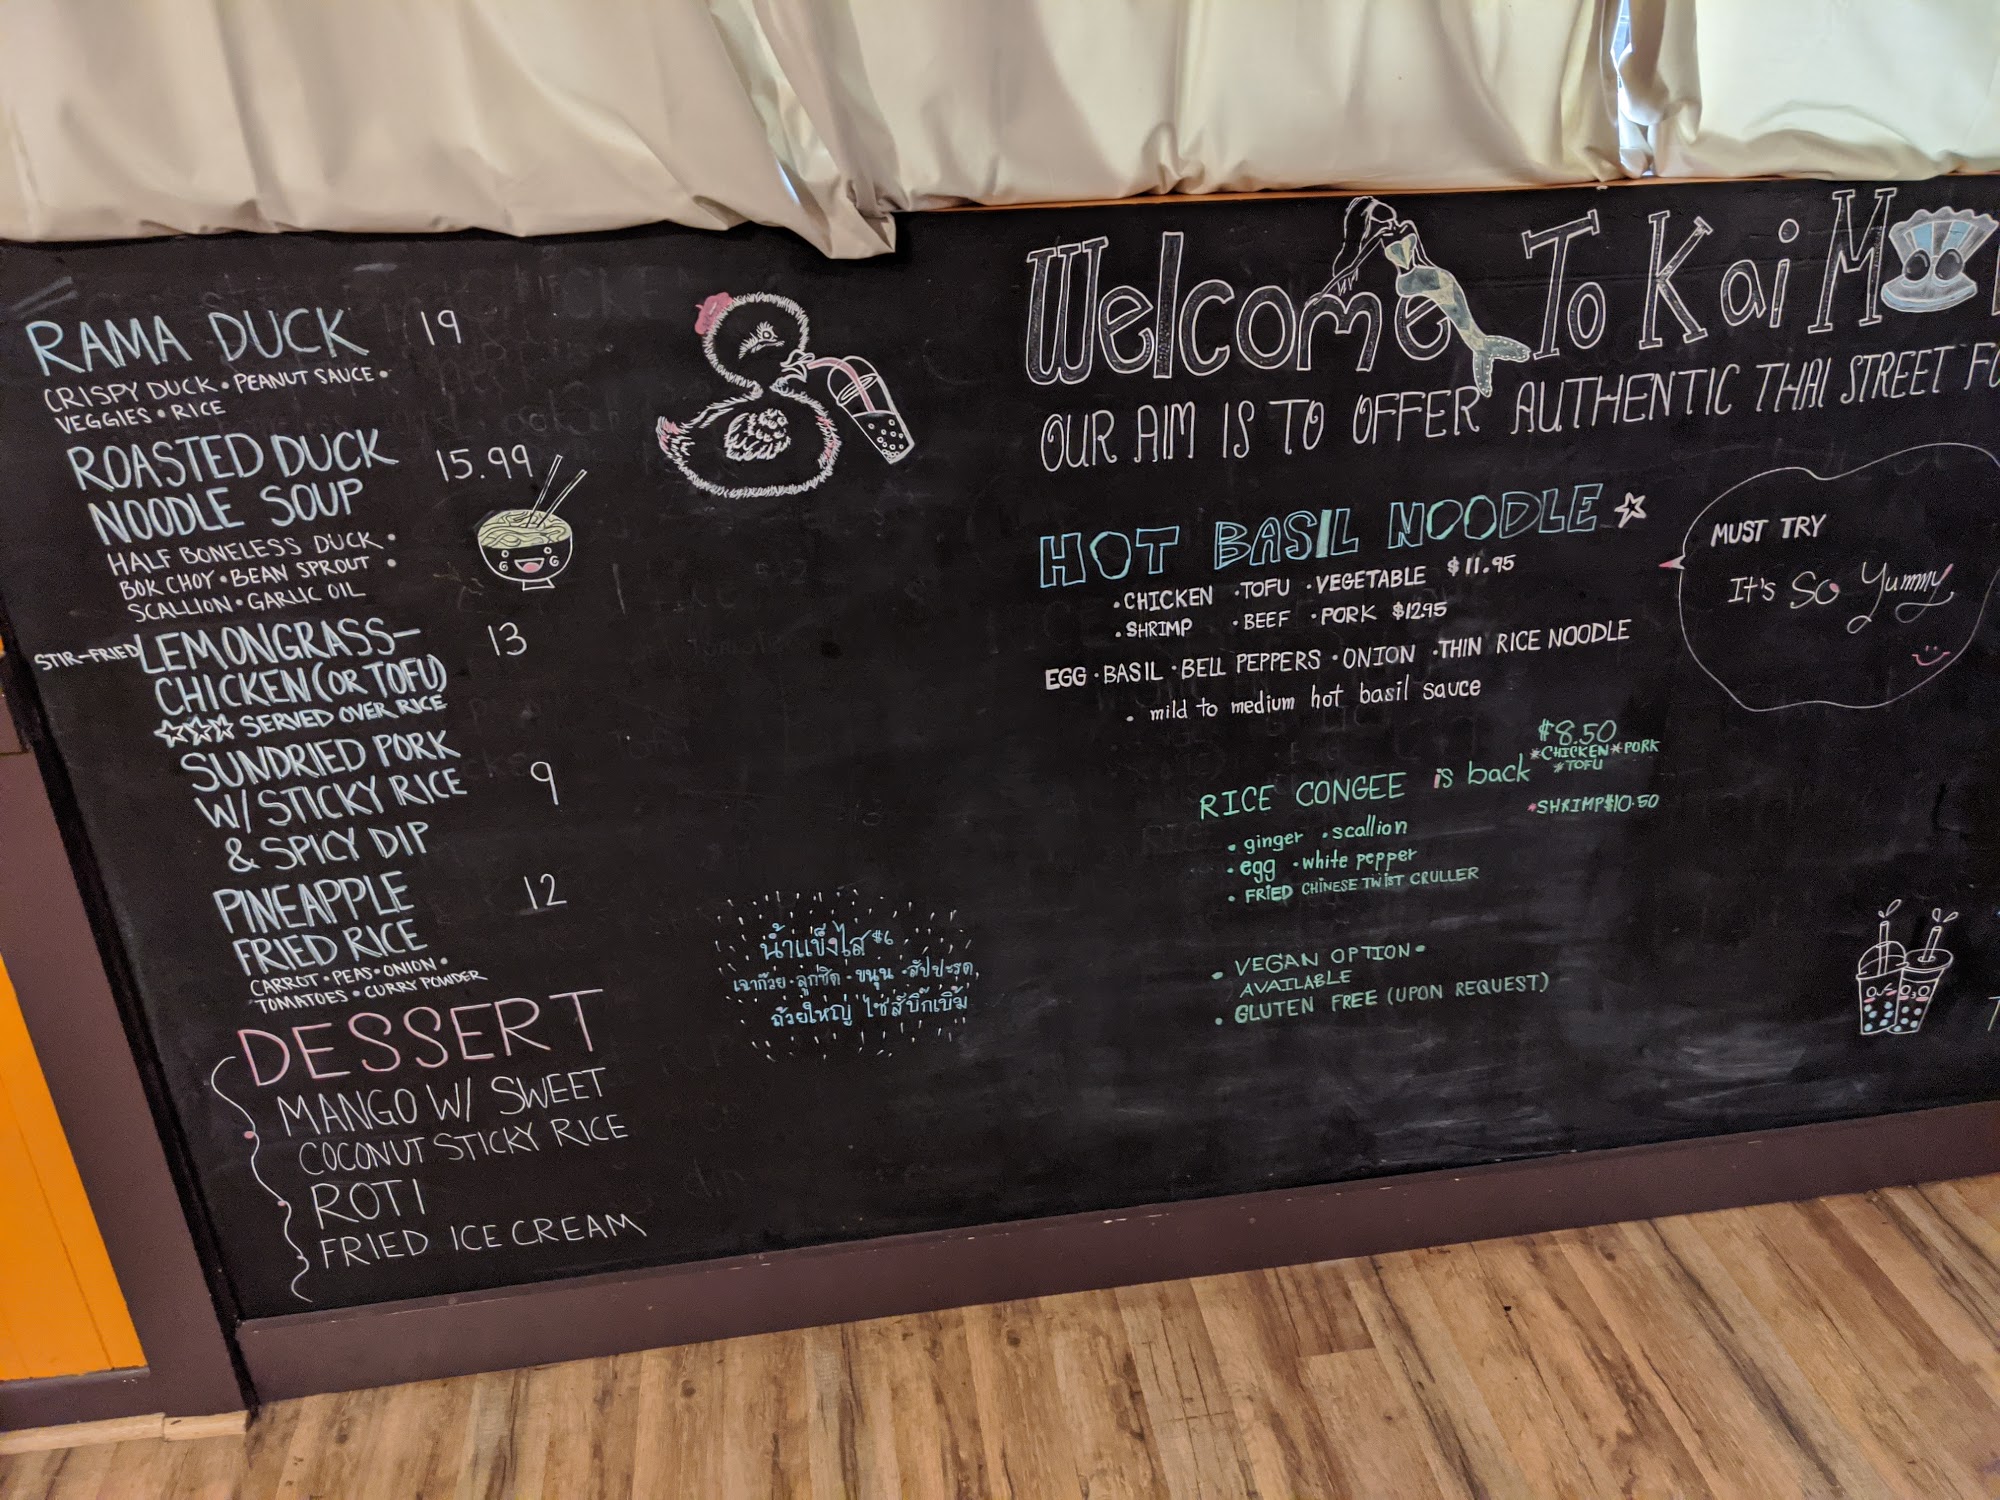 RAMA DUCK 19
CRISPY DUCK • PEANUT SAUCE •
VEGGIES • RICE
ROASTED DUCK 15.99
NOODLE SOUP
HALF BONELESS DUCK •
BOK CHOY • BEAN SPROUT •
SCALLION • GARLIC OIL
STIR-FRIED LEMONGRASS- 13
CHICKEN (OR TOFU)
☆☆☆ SERVED OVER RICE
SUNDRIED PORK
W/ STICKY RICE 9
& SPICY DIP
PINEAPPLE 12
FRIED RICE
CARROT • PEAS • ONION •
TOMATOES • CURRY POWDER
DESSERT
MANGO W/ SWEET
COCONUT STICKY RICE
ROTI
FRIED ICE CREAM
น้ำแข็งใส $6
เฉาก๊วย • ลูกชิด • ขนุน • สัปปะรด,
ถ้วยใหญ่ ไซส์บิ๊กเบิ้ม
Welcome To Kai M
OUR AIM IS TO OFFER AUTHENTIC THAI STREET FO
HOT BASIL NOODLE ☆
• CHICKEN • TOFU • VEGETABLE $11.95
• SHRIMP • BEEF • PORK $12.95
EGG • BASIL • BELL PEPPERS • ONION • THIN RICE NOODLE
• mild to medium hot basil sauce
MUST TRY
It's So Yummy
$8.50
*CHICKEN *PORK
*TOFU
RICE CONGEE is back
*SHRIMP $10.50
• ginger • scallion
• egg • white pepper
• FRIED CHINESE TWIST CRULLER
• VEGAN OPTION •
AVAILABLE
• GLUTEN FREE (UPON REQUEST)